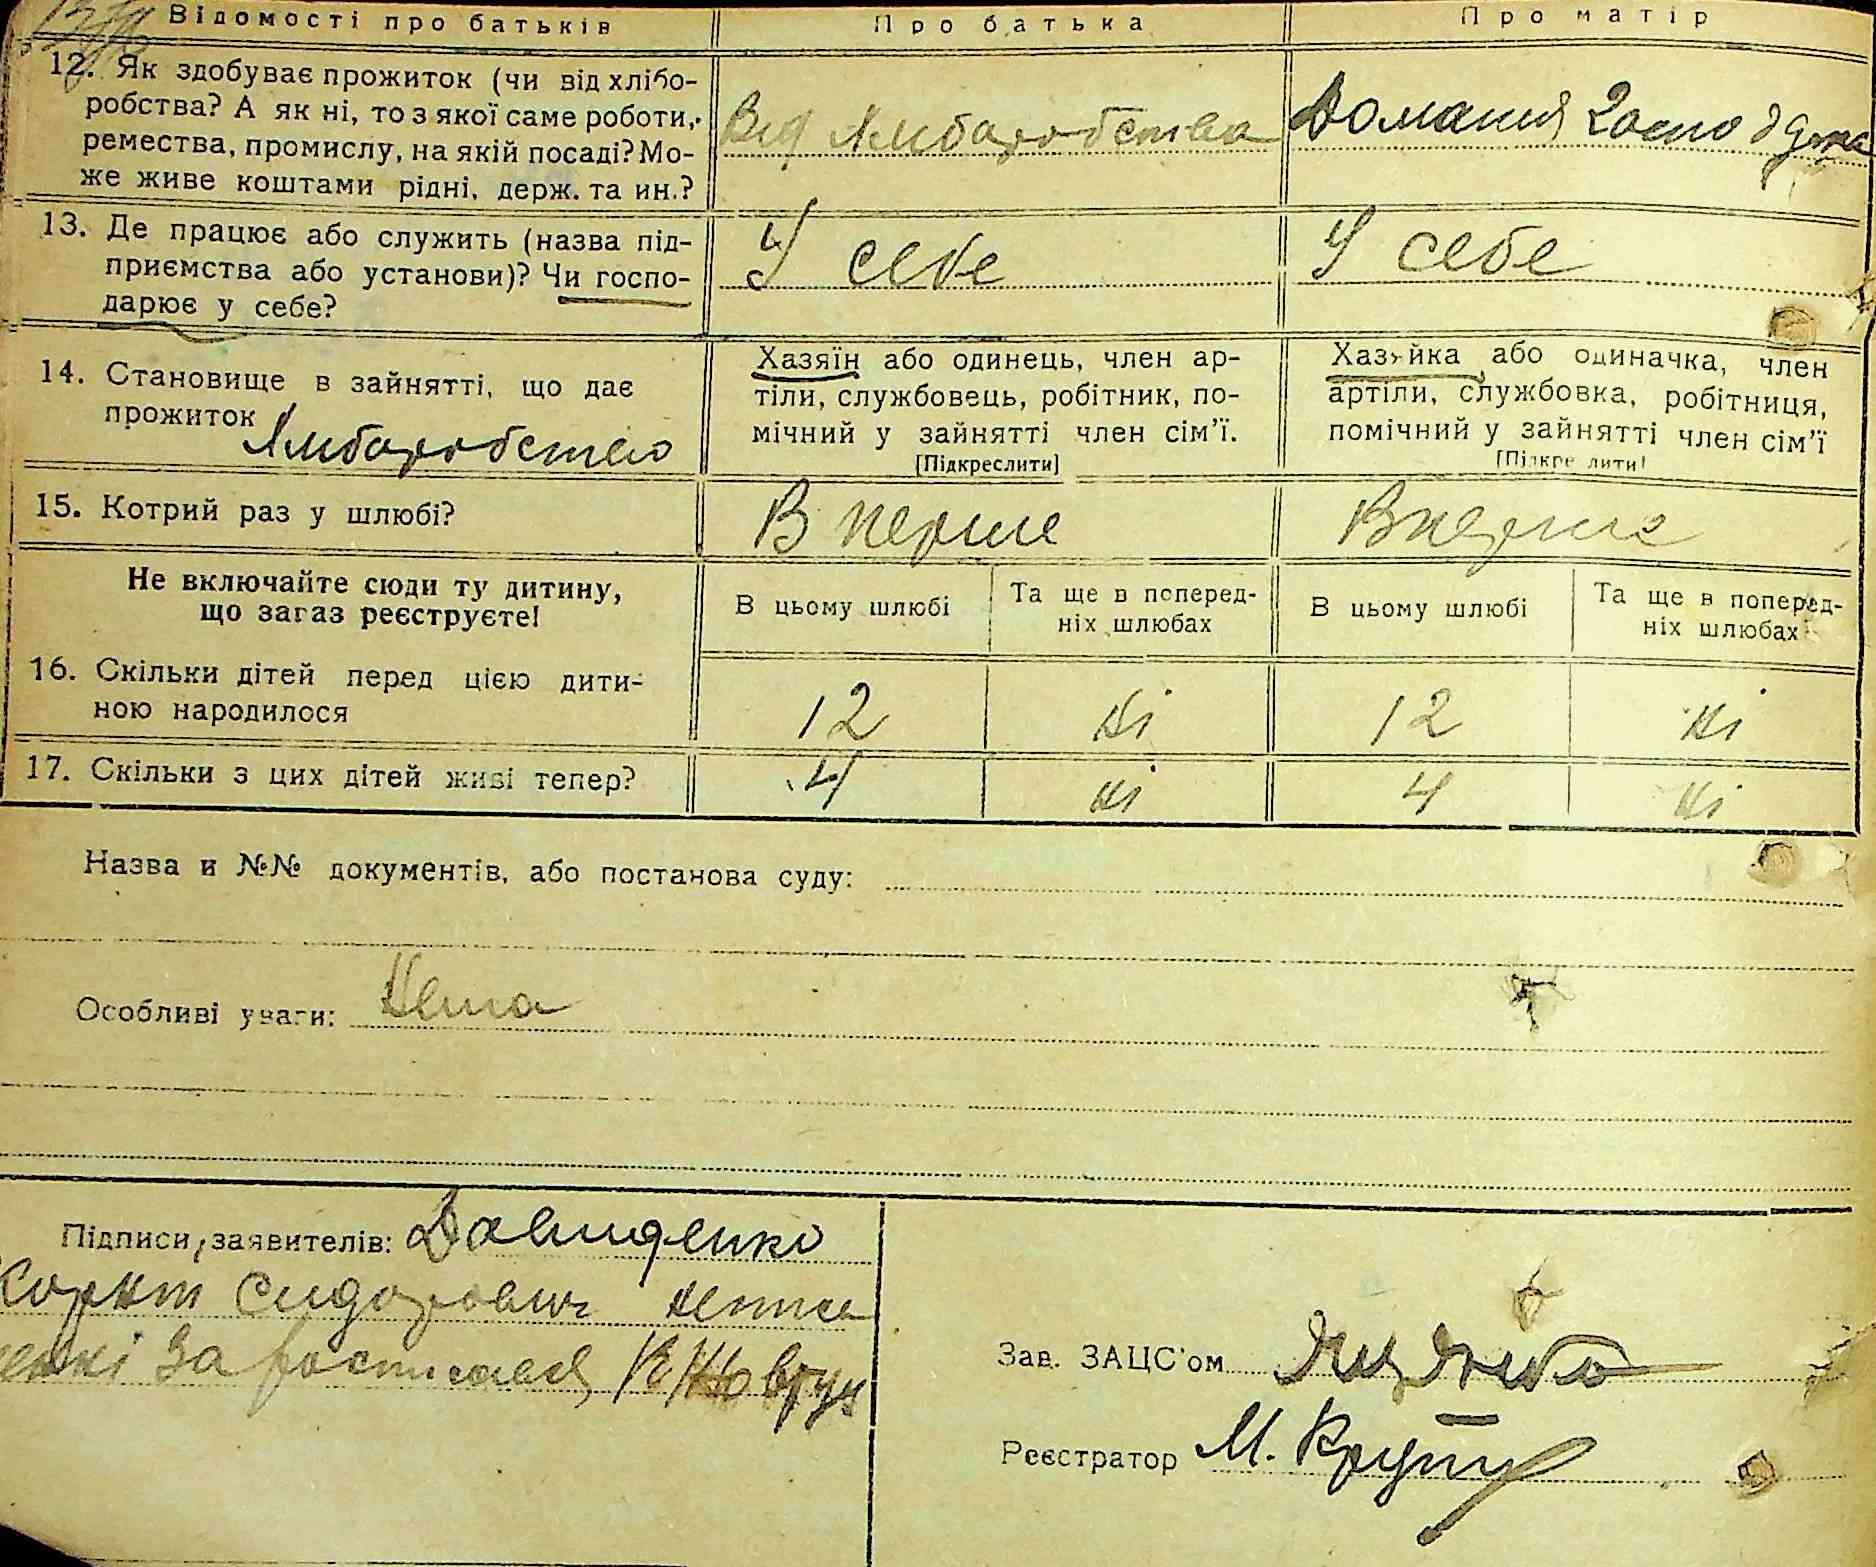 Відомості про батьків
Про батька
Про матір
12. Як здобуває прожиток (чи від хлібо-
робства? А як ні, то з якої саме роботи,
ремества, промислу, на якій посаді? Мо-
же живе коштами рідні, держ. та ин.?
Від
Домашня
13. Де працює або служить (назва під-
приємства або установи)? Чи госпо-
дарює у себе?
У себе
У себе
14. Становище в зайнятті, що дає
прожиток
Хазяїн або одинець, член ар-
тіли, службовець, робітник, по-
мічний у зайнятті член сім'ї.
[Підкреслити]
Хазяйка або одиначка, член
артіли, службовка, робітниця,
помічний у зайнятті член сім'ї
[Підкреслити]
15. Котрий раз у шлюбі?
В перше
Вперше
Не включайте сюди ту дитину,
що загаз реєструєте!
В цьому шлюбі
Та ще в поперед-
ніх шлюбах
В цьому шлюбі
Та ще в поперед-
ніх шлюбах
16. Скільки дітей перед цією дити-
ною народилося
12
ні
12
ні
17. Скільки з цих дітей живі тепер?
4
ні
4
ні
Назва и №№ документів, або постанова суду:
Особливі уваги: Нема
Підписи заявителів: Давиденко
Сидорович
за
Зав. ЗАЦС'ом
Реєстратор М.